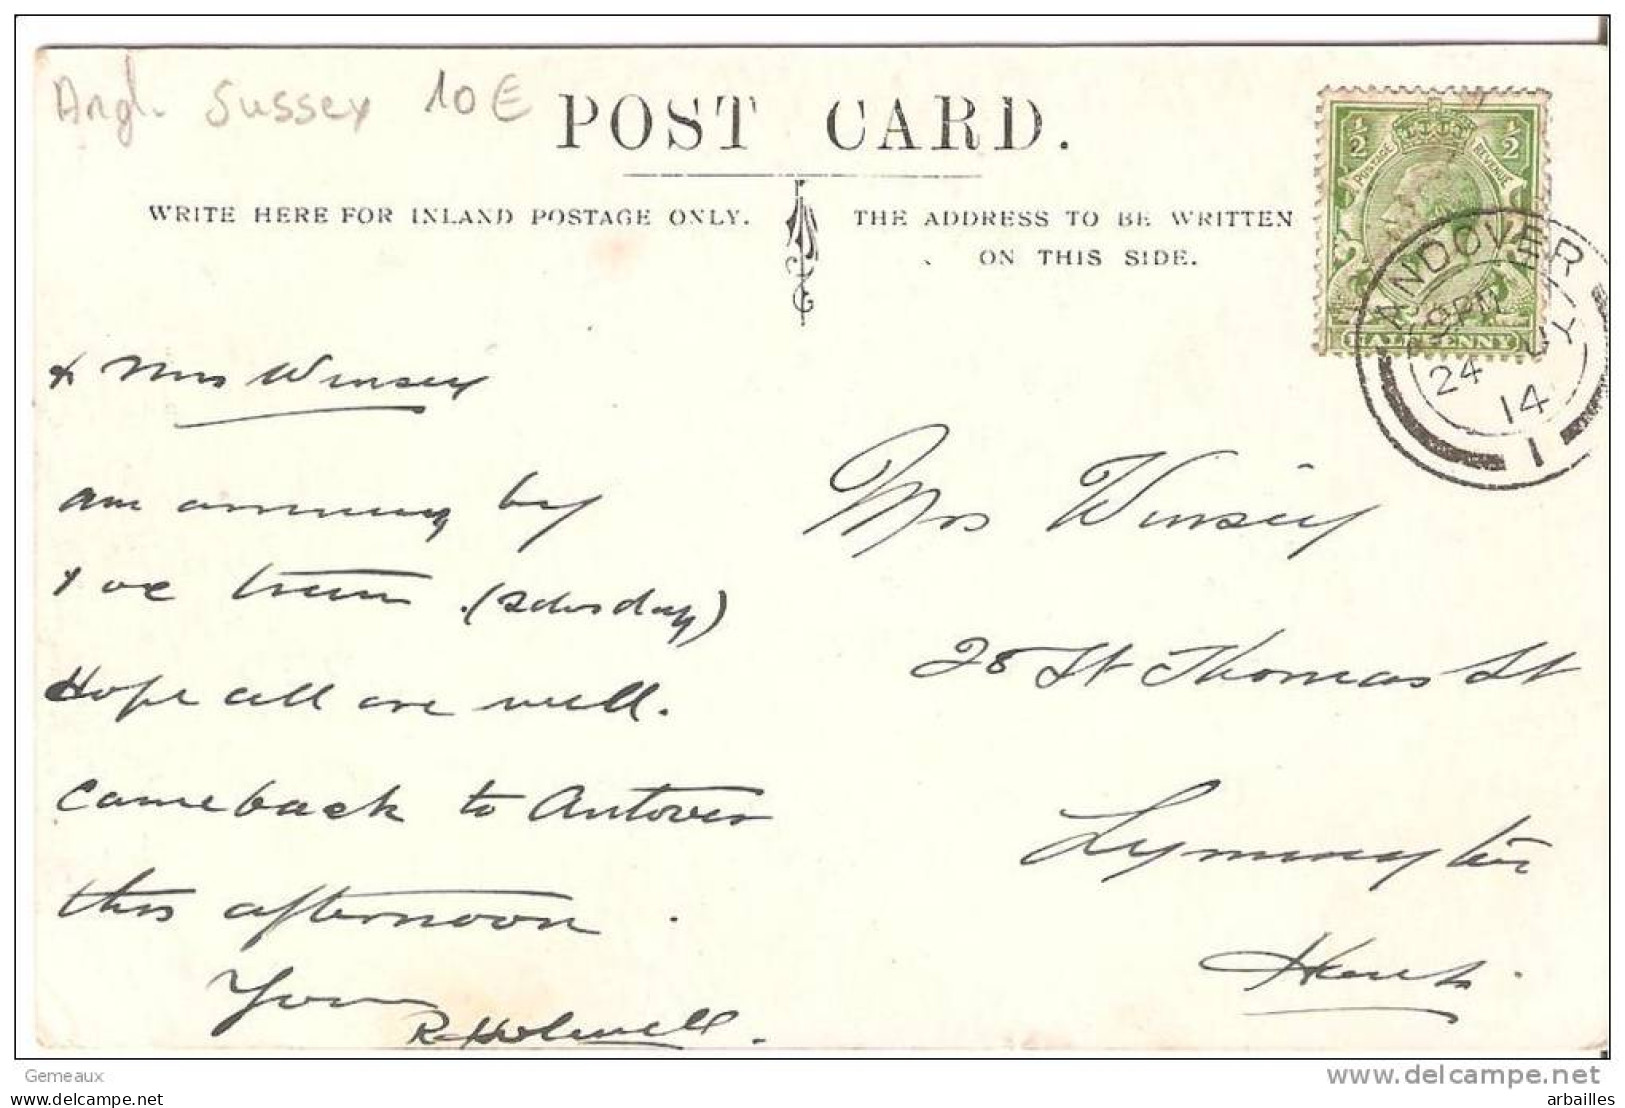 Angl. Sussex 10 E
POST CARD.
WRITE HERE FOR INLAND POSTAGE ONLY.
THE ADDRESS TO BE WRITTEN
ON THIS SIDE.
½ ½
POSTAGE REVENUE
HALFPENNY
ANDOVER
PM
24 JY
14
1
Mrs Winsey
am by
(
)
Hope all are well.
came back to Antover
this afternoon.
R. Holwell.
Mrs Winsey
28 St Thomas St
Lymington
Hants.
Gemeaux
www.delcampe.net
arbailles